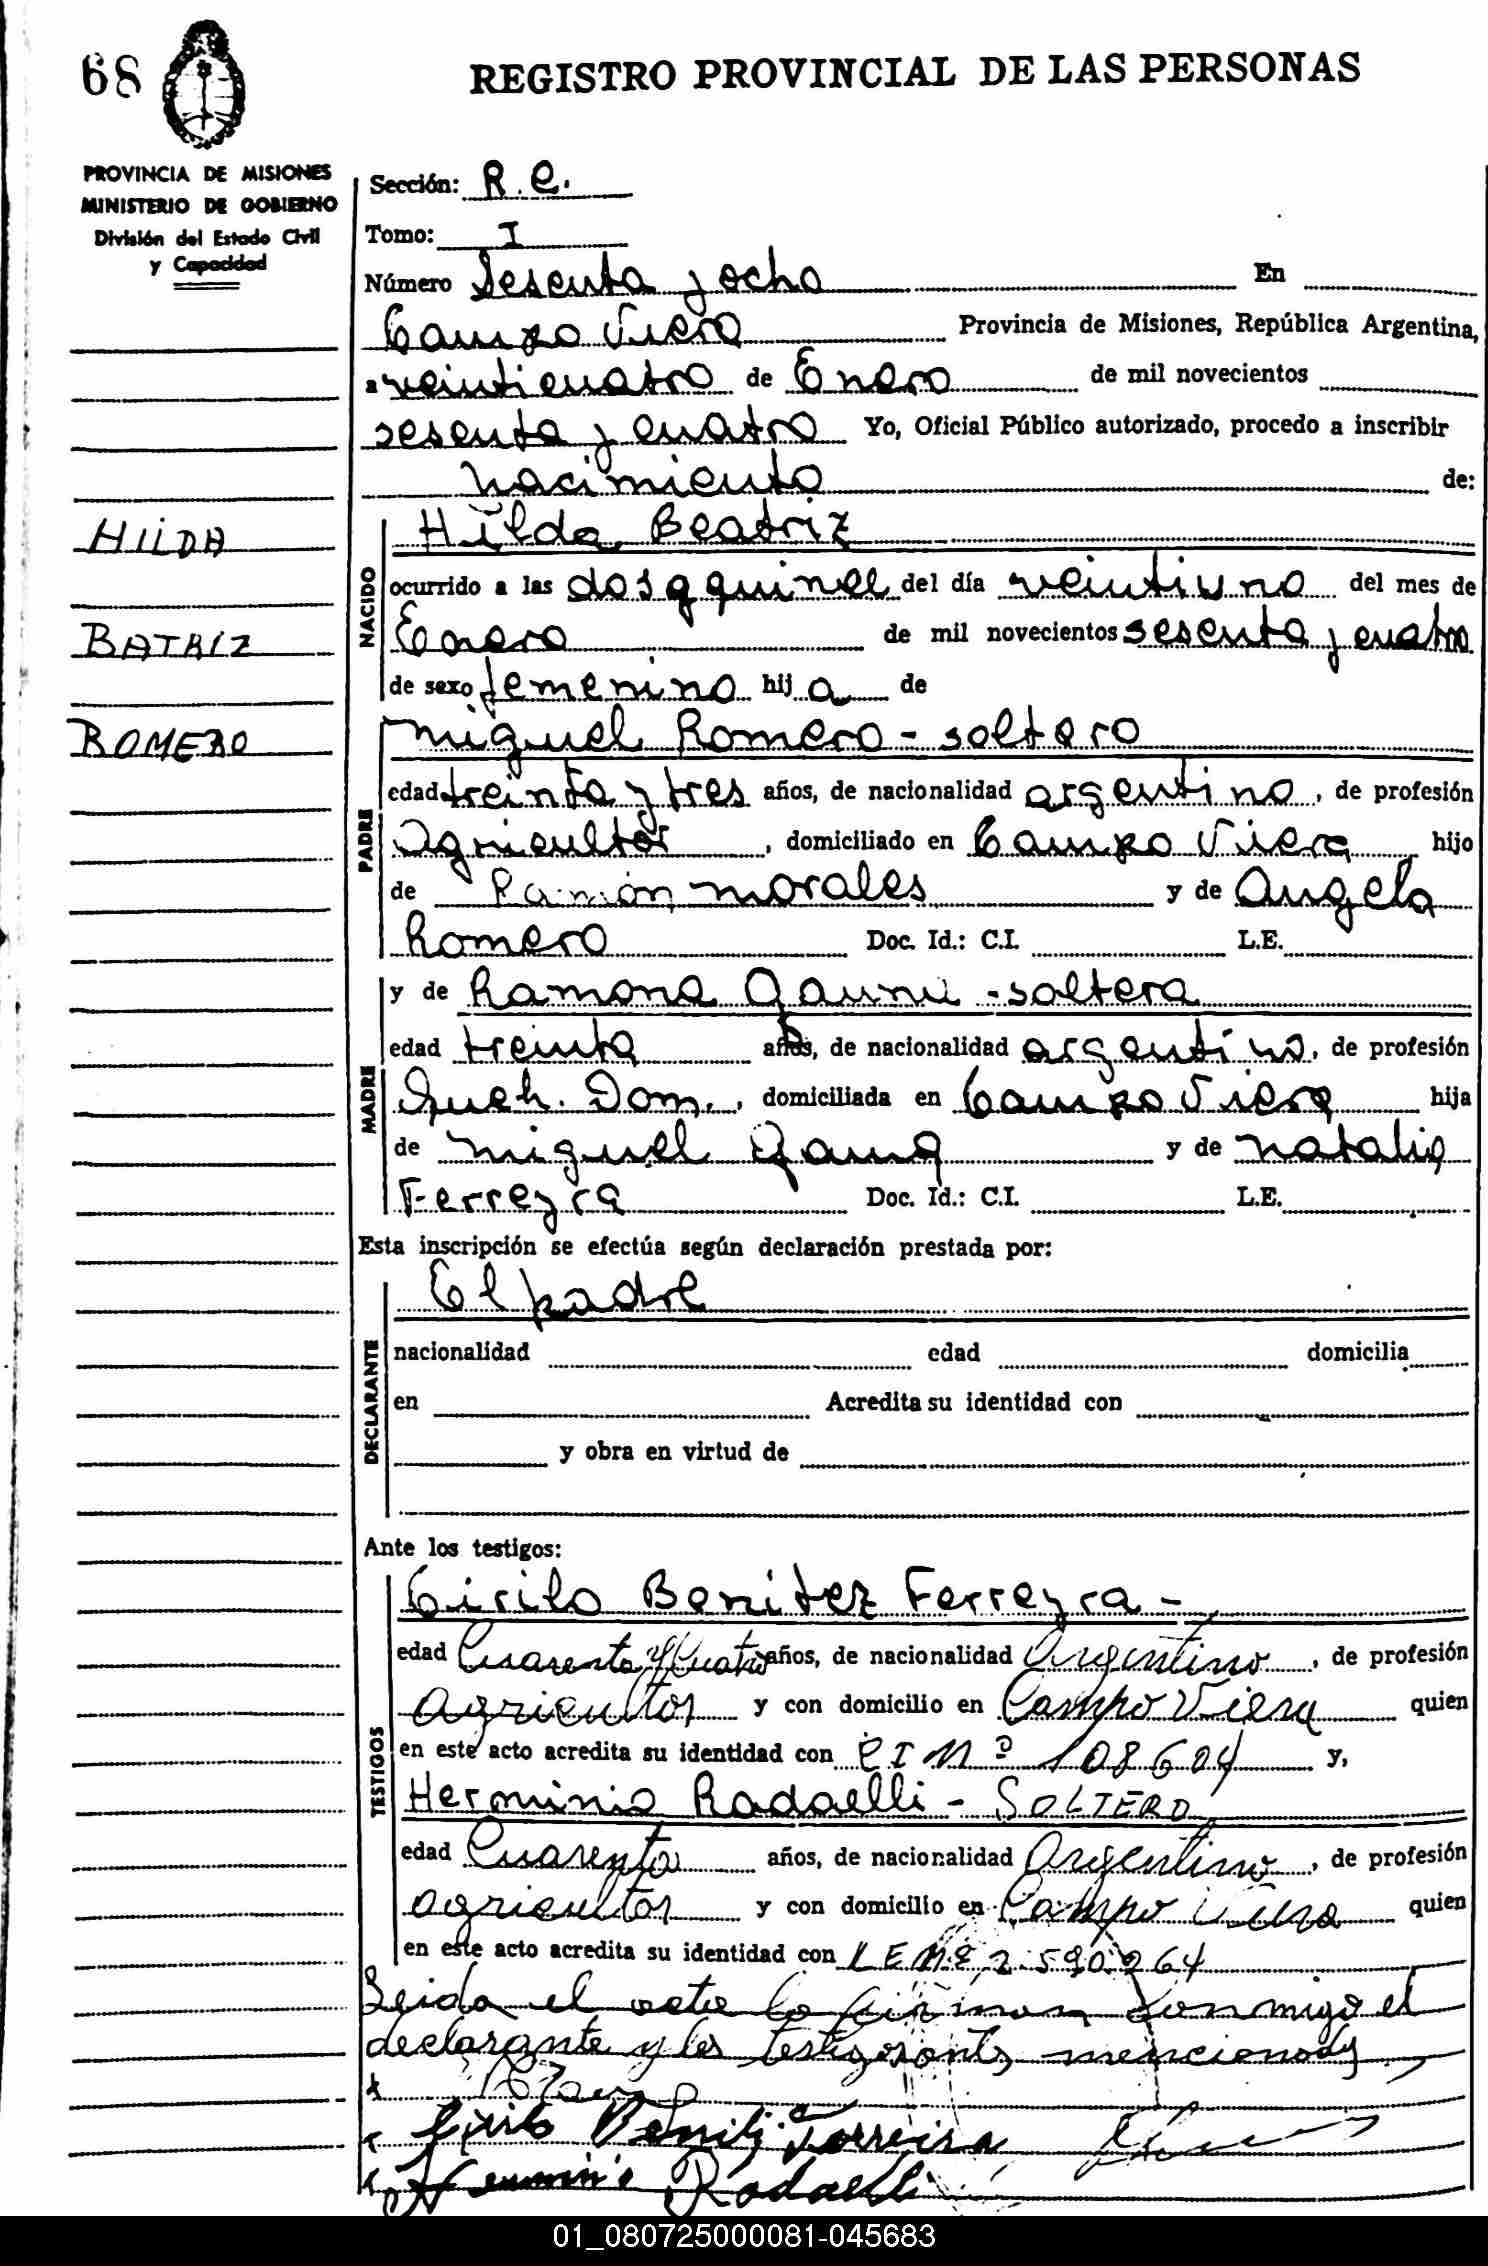 68
REGISTRO PROVINCIAL DE LAS PERSONAS
PROVINCIA DE MISIONES
MINISTERIO DE GOBIERNO
División del Estado Civil
y Capacidad
Sección: R.C.
Tomo: I
Número Sesenta y ocho En
Campo Viera Provincia de Misiones, República Argentina,
a veinticuatro de Enero de mil novecientos
sesenta y cuatro Yo, Oficial Público autorizado, procedo a inscribir
nacimiento de:
HILDA
BATRIZ
ROMERO
NACIDO
Hilda Beatriz
ocurrido a las dos y quince del día veintiuno del mes de
Enero de mil novecientos sesenta y cuatro
de sexo femenino hija de
PADRE
Miguel Romero - soltero
edad treinta y tres años, de nacionalidad argentino, de profesión
Agricultor, domiciliado en Campo Viera hijo
de Ramón Morales y de Angela
Romero Doc. Id.: C.I. L.E.
MADRE
y de Ramona - soltera
edad treinta años, de nacionalidad argentina, de profesión
Queh. Dom., domiciliada en Campo Viera hija
de Miguel y de Natalia
Ferreyra Doc. Id.: C.I. L.E.
Esta inscripción se efectúa según declaración prestada por:
DECLARANTE
El padre
nacionalidad edad domicilia
en Acredita su identidad con
y obra en virtud de
Ante los testigos:
TESTIGOS
Cirilo Benitez Ferreyra -
edad Cuarenta y Cuatro años, de nacionalidad Argentino, de profesión
agricultor y con domicilio en Campo Viera quien
en este acto acredita su identidad con CI Nº 108604 y,
Herminio Radaelli - SOLTERO
edad Cuarenta años, de nacionalidad Argentino, de profesión
agricultor y con domicilio en Campo Viera quien
en este acto acredita su identidad con LE Nº 2.590.264
Leida el acta la firman conmigo el
declarante y los testigos mencionados
x
x Cirilo Benitez Ferreira
x Herminio Radaelli
01_080725000081-045683